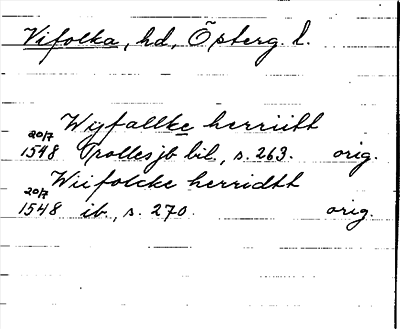 Vifolka, hd, Österg. l.
Wijfallke herriitt
20/7
1548 Trolles jb bil., s. 263. orig.
Wiifolcke herridtt
20/7
1548 ib., s. 270. orig.